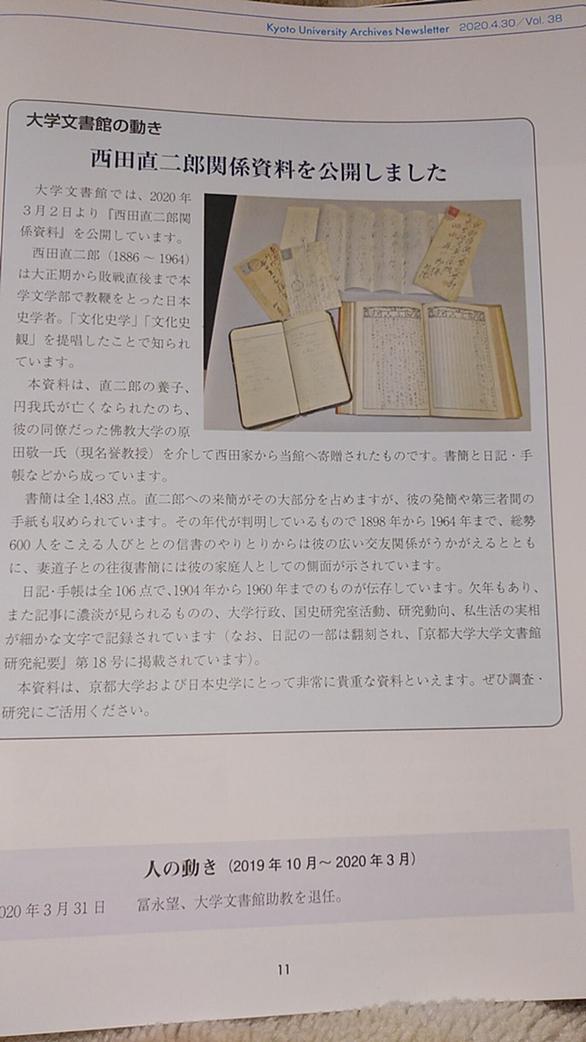 Kyoto University Archives Newsletter 2020.4.30/Vol. 38
大学文書館の動き
西田直二郎関係資料を公開しました
大学文書館では、2020年
3月2日より『西田直二郎関
係資料』を公開しています。
西田直二郎（1886～1964）
は大正期から敗戦直後まで本
学文学部で教鞭をとった日本
史学者。「文化史学」「文化史
観」を提唱したことで知られ
ています。
本資料は、直二郎の養子、
円我氏が亡くなられたのち、
彼の同僚だった佛教大学の原
田敬一氏（現名誉教授）を介して西田家から当館へ寄贈されたものです。書簡と日記・手
帳などから成っています。
書簡は全1,483点。直二郎への来簡がその大部分を占めますが、彼の発簡や第三者間の
手紙も収められています。その年代が判明しているもので1898年から1964年まで、総勢
600人をこえる人びととの信書のやりとりからは彼の広い交友関係がうかがえるととも
に、妻道子との往復書簡には彼の家庭人としての側面が示されています。
日記・手帳は全106点で、1904年から1960年までのものが伝存しています。欠年もあり、
また記事に濃淡が見られるものの、大学行政、国史研究室活動、研究動向、私生活の実相
が細かな文字で記録されています（なお、日記の一部は翻刻され、『京都大学大学文書館
研究紀要』第18号に掲載されています）。
本資料は、京都大学および日本史学にとって非常に貴重な資料といえます。ぜひ調査・
研究にご活用ください。
人の動き（2019年10月～2020年3月）
020年3月31日 冨永望、大学文書館助教を退任。
11